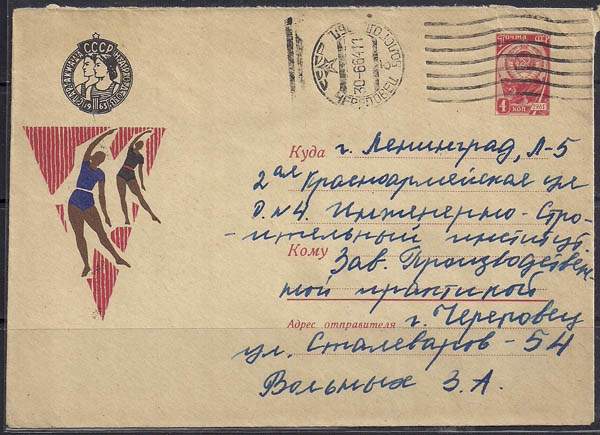 СССР
СПАРТАКИАДА НАРОДОВ
1963
ЧЕРЕПОВЕЦ
ПОЧТА СССР
4 КОП
Куда г. Ленинград, Л-5
2ая Красноармейская ул
д. №4 Инженерно-Стро-
ительный институт.
Кому Зав. Производствен-
ной практикой
Адрес отправителя г. Череповец
ул. Сталеваров - 54
Вольных З. А.